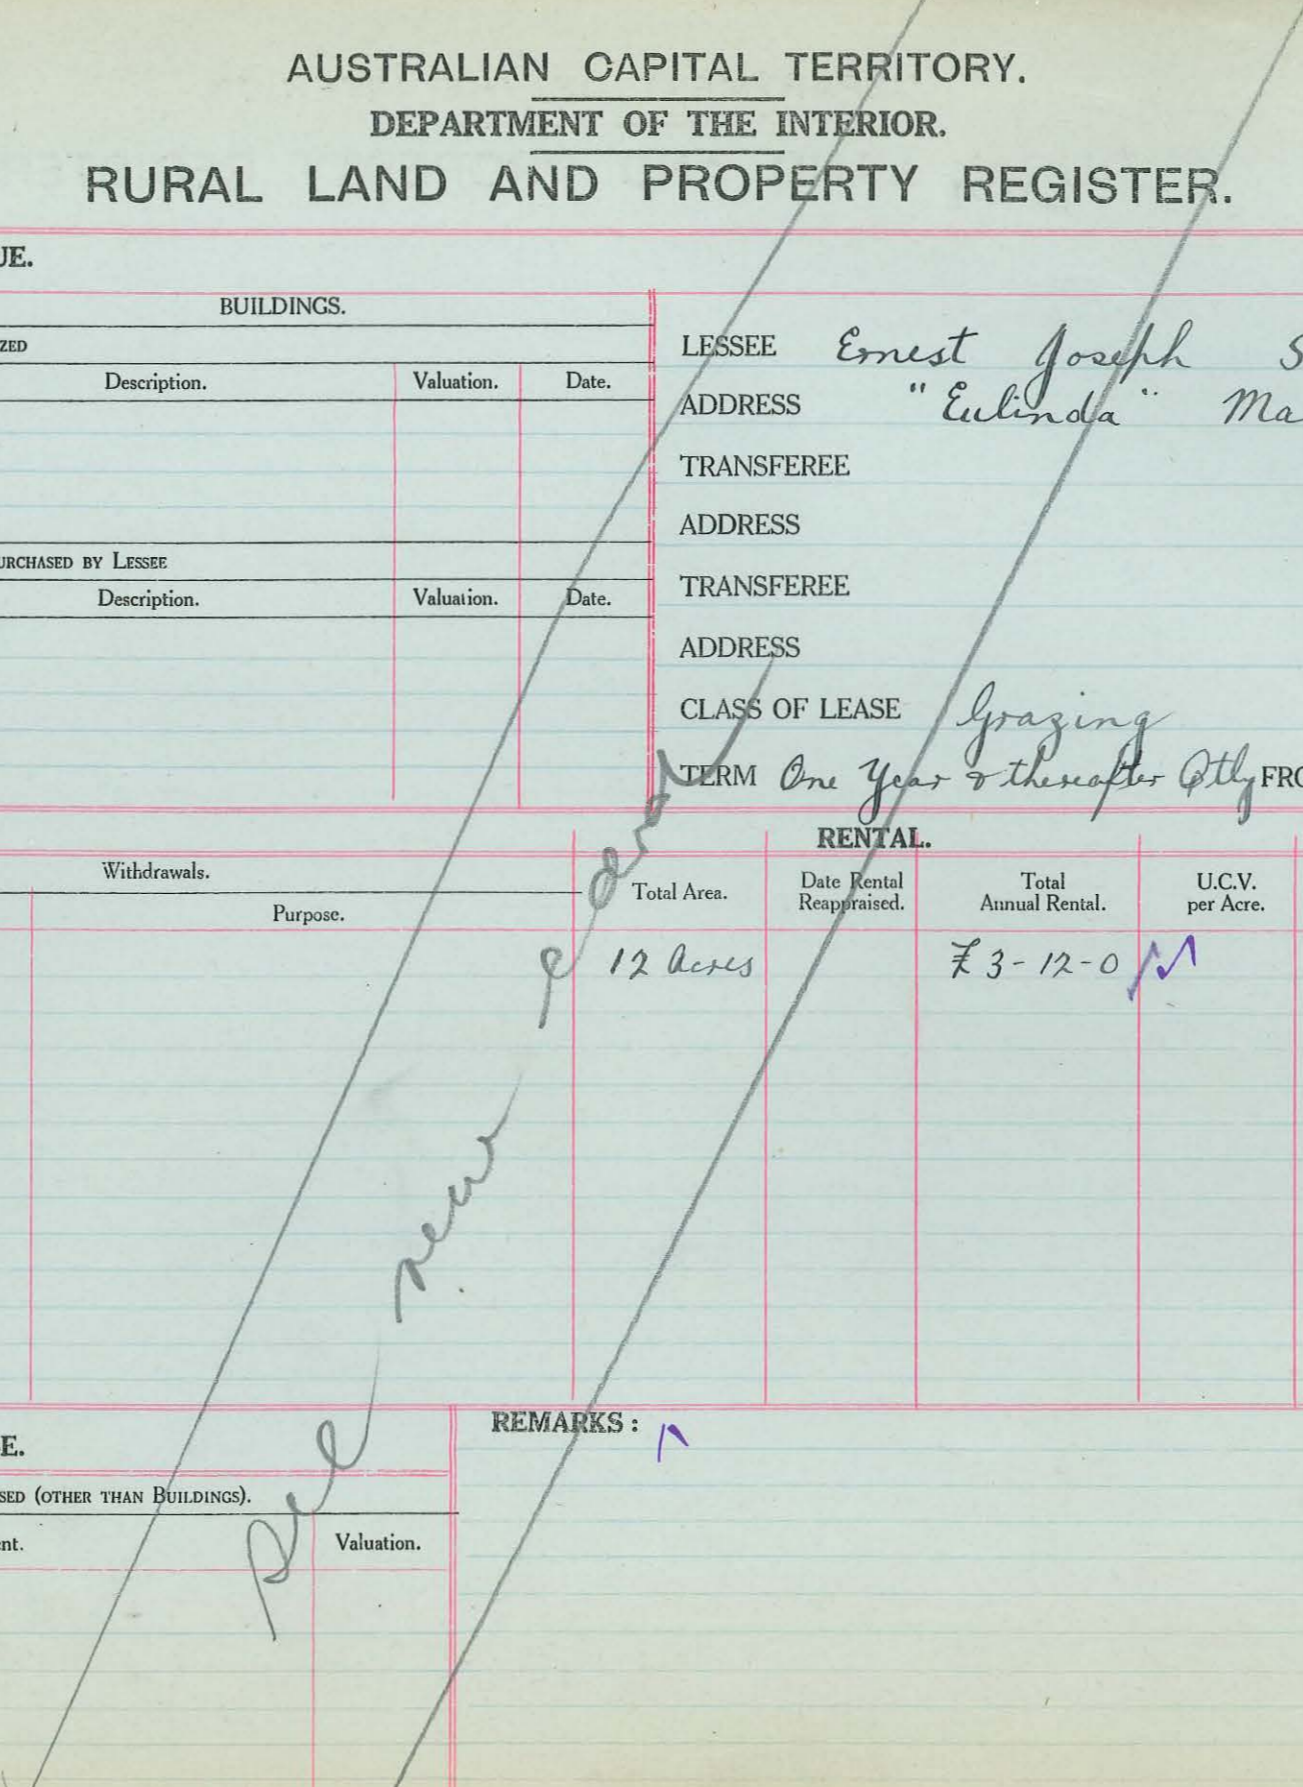 AUSTRALIAN CAPITAL TERRITORY.
DEPARTMENT OF THE INTERIOR.
RURAL LAND AND PROPERTY REGISTER.
UE.
BUILDINGS.
ZED
Description. Valuation. Date.
URCHASED BY LESSEE
Description. Valuation. Date.
LESSEE Ernest Joseph S
ADDRESS "Eulinda" Ma
TRANSFEREE
ADDRESS
TRANSFEREE
ADDRESS
CLASS OF LEASE Grazing
TERM One Year & thereafter Qtly FRO
RENTAL.
Withdrawals.
Purpose.
Total Area.
Date Rental Reappraised.
Total Annual Rental.
U.C.V. per Acre.
12 Acres £3-12-0
see new card
REMARKS:
E.
SED (OTHER THAN BUILDINGS).
nt. Valuation.